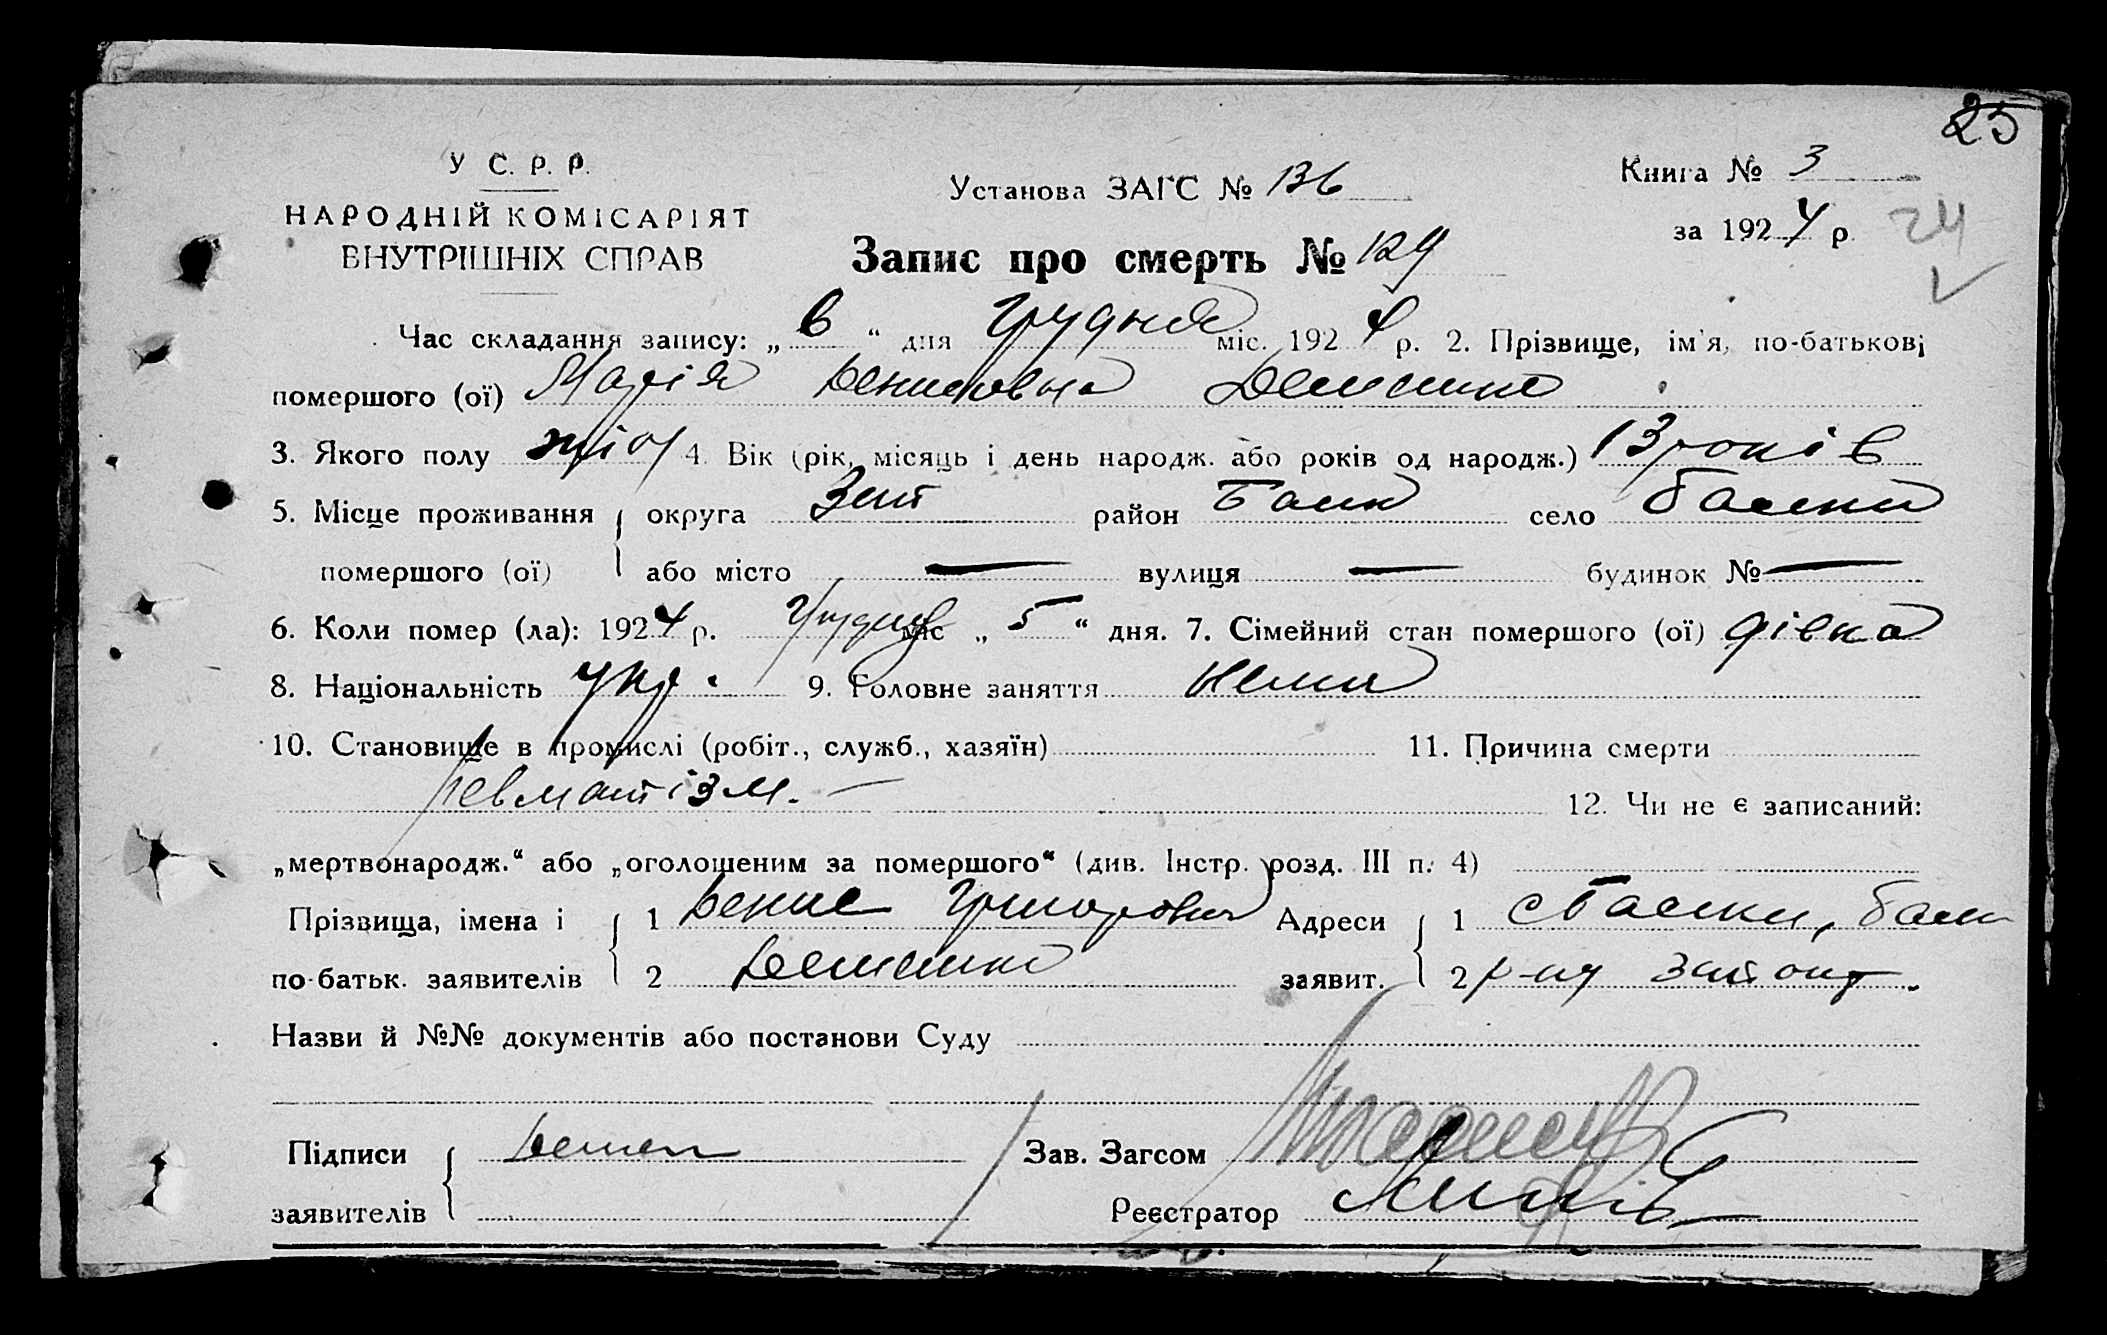 25
У С. Р. Р.
НАРОДНІЙ КОМІСАРІЯТ
ВНУТРІШНІХ СПРАВ
Установа ЗАГС № 136
Книга № 3
за 1924 р.
24
Запис про смерть № 129
Час складання запису: „ 6 “ дня Грудня міс. 1924 р. 2. Прізвище, ім'я, по-батькові
помершого (ої) Марія Денисовна
3. Якого полу жіоч 4. Вік (рік, місяць і день народж. або років од народж.) 13 років
5. Місце проживання округа Зап район Балк село Балки
помершого (ої) або місто — вулиця — будинок № —
6. Коли помер (ла): 1924 р. Грудня міс „ 5 “ дня. 7. Сімейний стан помершого (ої) дівка
8. Національність укр. 9. Головне заняття
10. Становище в промислі (робіт., служб., хазяїн) 11. Причина смерти
Ревматізм. —
12. Чи не є записаний:
„мертвонародж.“ або „оголошеним за помершого“ (див. Інстр. розд. III п. 4)
Прізвища, імена і 1 Денис Григорович Адреси 1 с Балки, Балк
по-батьк. заявителів 2 заявит. 2 р-ну Зап окр.
Назви й №№ документів або постанови Суду
Підписи Зав. Загсом
заявителів Реєстратор